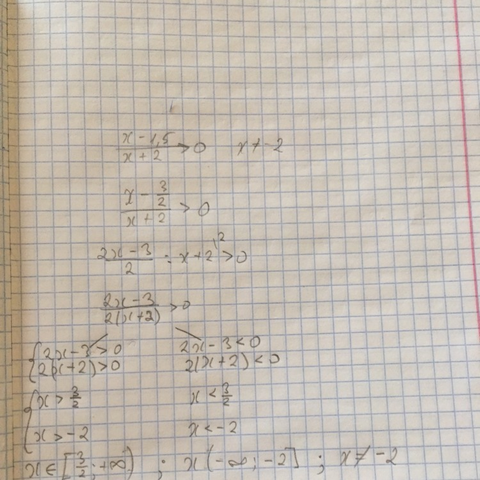 x - 1,5 / x + 2 > 0 x ≠ -2
x - 3/2 / x + 2 > 0
2x - 3 / 2 : x + 2 \2 > 0
2x - 3 / 2(x+2) > 0
{ 2x - 3 > 0 2x - 3 < 0
2(x+2) > 0 2(x+2) < 0
{ x > 3/2 x < 3/2
x > -2 x < -2
x ∈ [3/2; +∞) ; x (-∞; -2] ; x ≠ -2